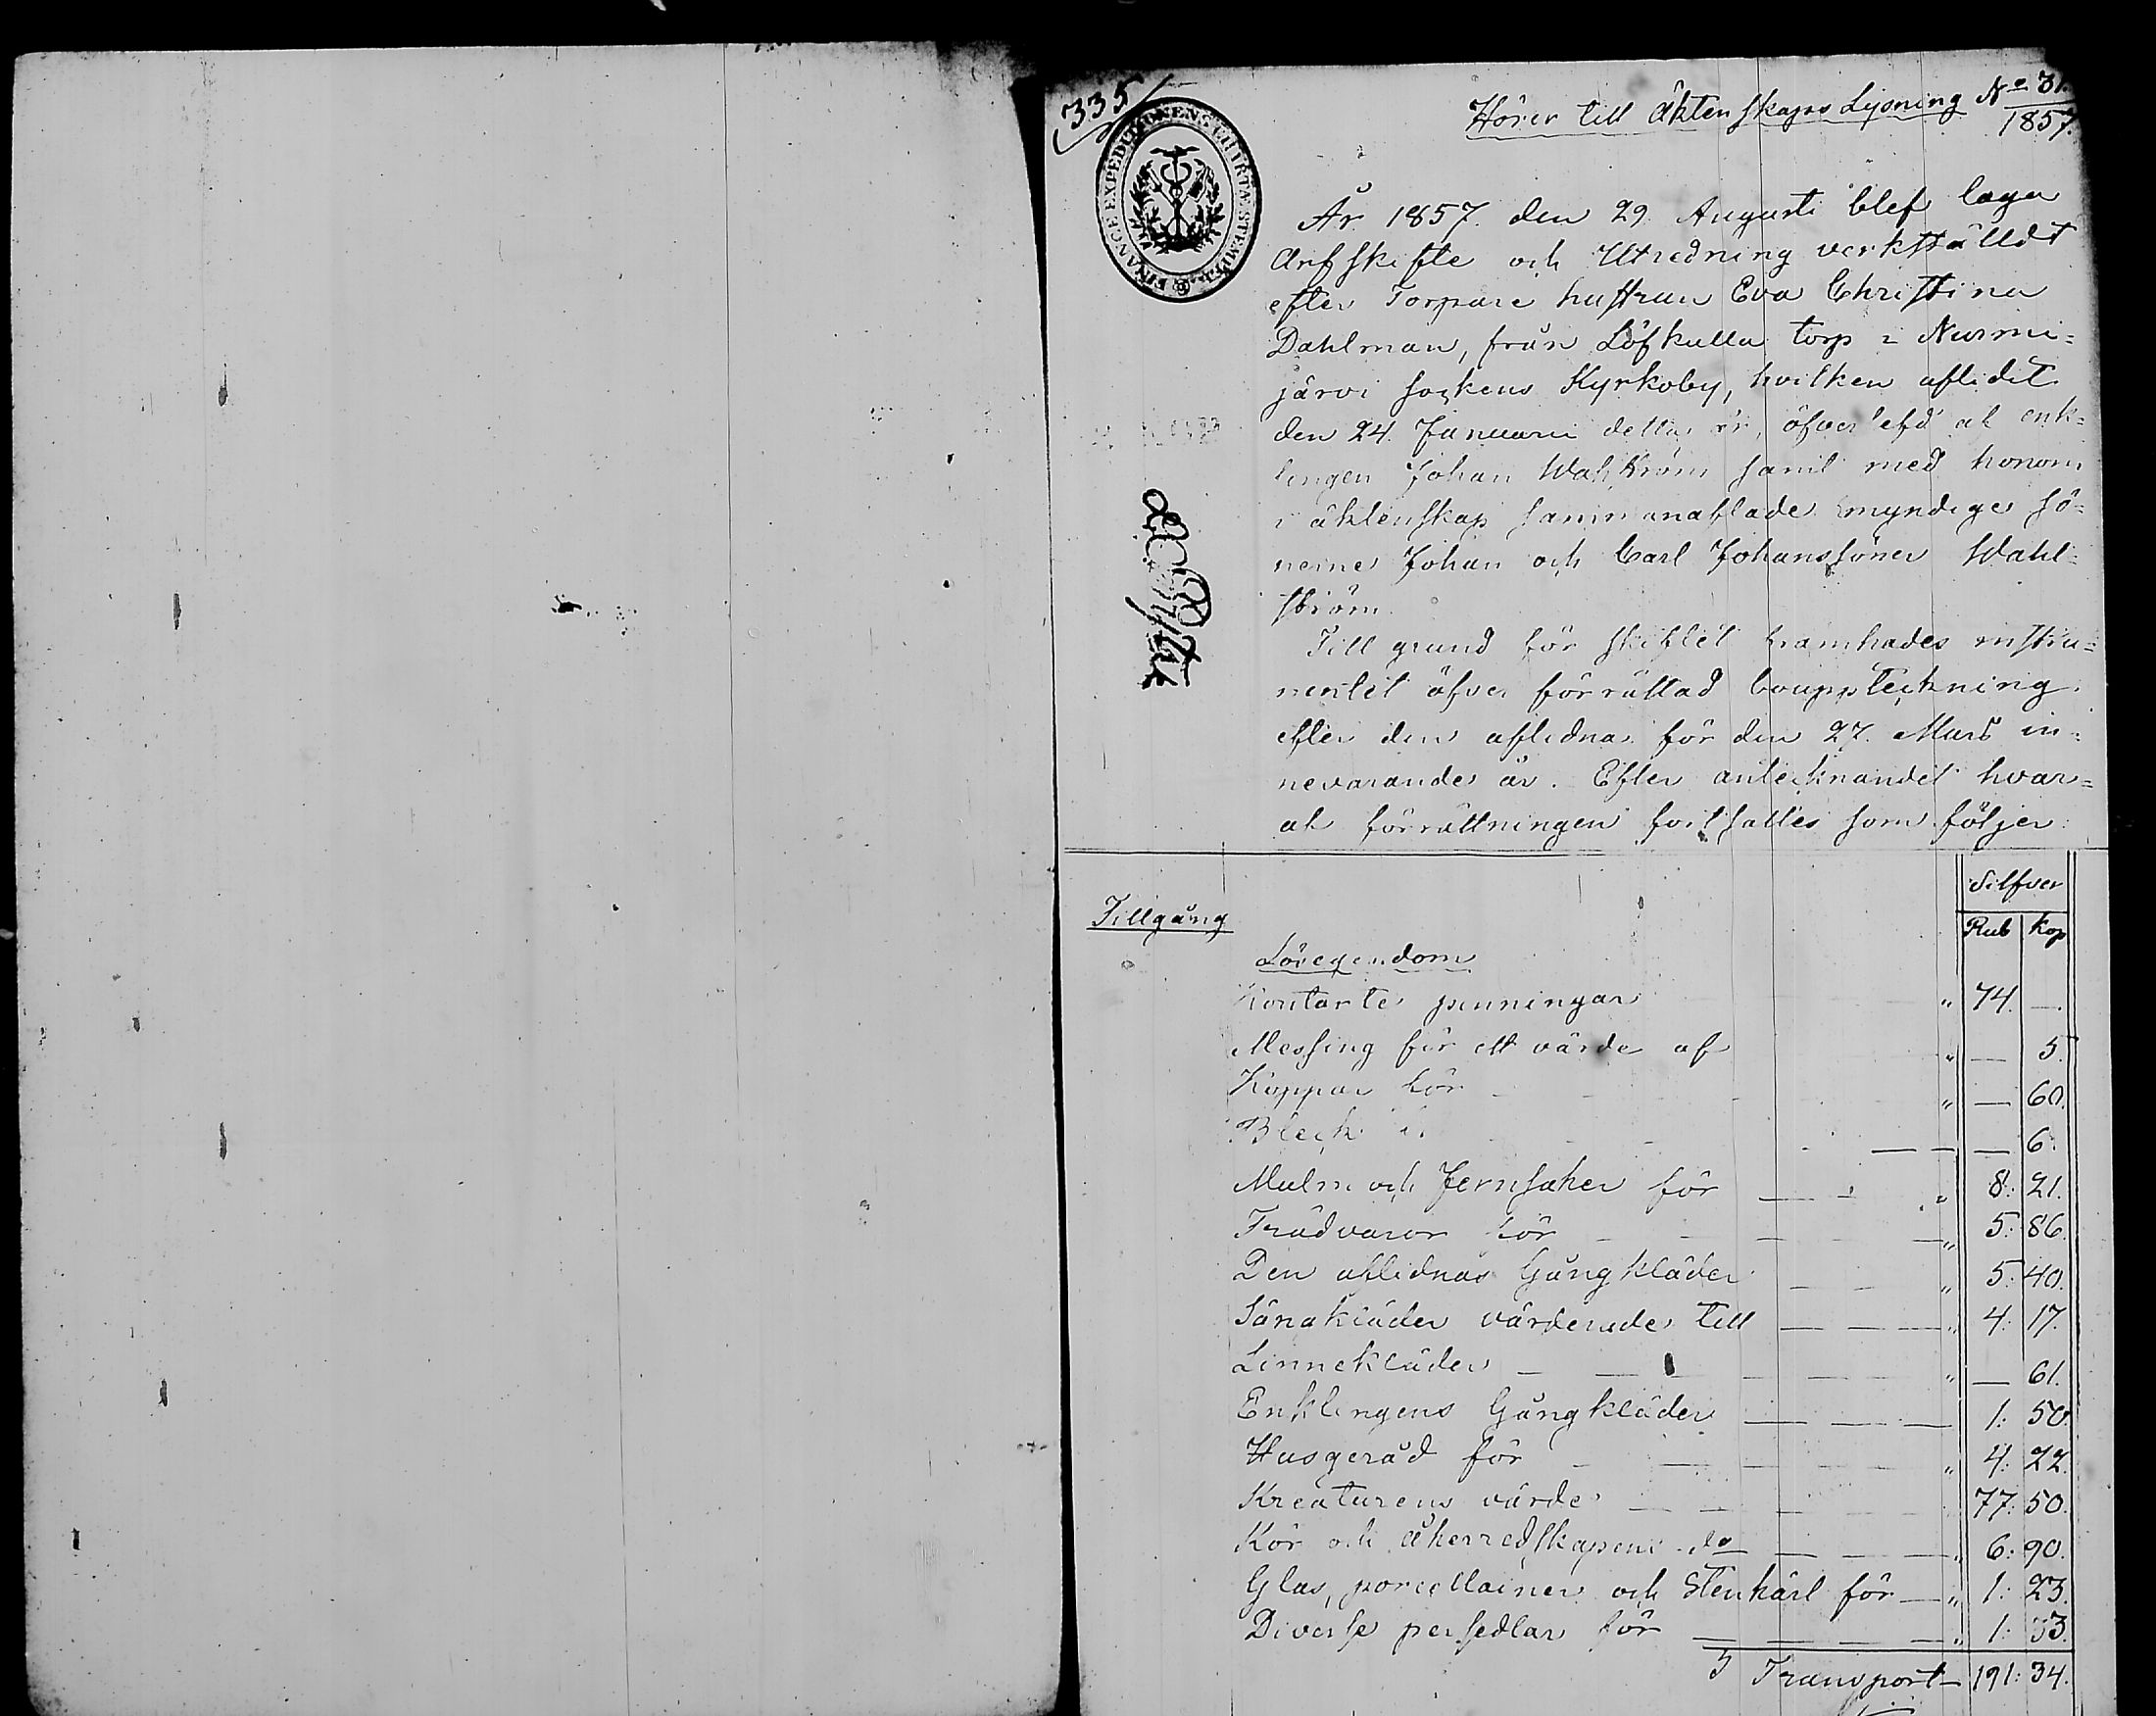 335
FINANCE EXPEDITIONENS CHARTÆ STEMPEL
Hörer till Äktenskaps Lysning No 31.
1857.
År 1857. den 29 Augusti blef laga
Arfskifte och Utredning verkställdt
efter Torpare hustrun Eva Christina
Dahlman, från Löfkulla torp i Nurmi=
järvi sockens Kyrkoby, hvilken aflidit
den 24. Januari detta år, öfverlefd af enk=
lingen Johan Wahlström samt med honom
i äktenskap sammanaflade myndige sö=
nerne Johan och Carl Johanssöner Wahl=
ström.
Till grund för skiftet framhades instru=
mentet öfver förrättad bouppteckning
efter den aflidna för den 27. Mars in=
nevarande år. Efter antecknandet hvar=
af förrättningen fortsattes som följer:
Silfver
Tillgång
Rub Kop
Lösegendom
Kontante penningar " 74. —.
Messing för ett värde af " — 5.
Koppar för " — 60.
Bleck — — 6.
Malm och Jernsaker för " 8: 21.
Trädvaror för " 5: 86.
Den aflidnas Gångkläder " 5: 40.
Sängkläder värderade till " 4: 17.
Linnekläder " — 61.
Enklingens Gångkläder 1: 50.
Husgeråd för " 4: 22.
Kreaturens värde 77: 50.
Kör och åkerredskapens do " 6: 90.
Glas, porcellainer och Stenkärl för " 1: 23.
Diverse persedlar för " 1: 33.
Transport 191: 34.